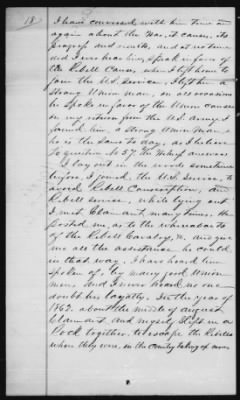 18
I have conversed with him time and
again about the War, it causes, its
progress and results, and at no time
did I ever hear him, speak in favor of
the Rebell Cause, when I left home to
join the U.S. service I left him a
strong Union man, on all occasions
he spoke in favor of the Union causes
on my return from the U.S. Army I
found him, a strong Union man &
he is the same to day, as I believe
To question No 37 he answers
I lay out in the woods sometime
before, I joined, the U.S. Service, to
avoid Rebell Conscription, and
Rebell service, while lying out
I met Claimant many times. He
posted me, as to the whereabouts
of the Rebell Cavalry, &c, and gave
me all the assistance he could
in that way. I have heard him
spoken of, by many good Union
men, and I never heard no one
doubt his loyalty. In the year of
1862, about the middle of August
Claimant, and myself slept in a
Rock together, to escape the Rebells
when they were, in the County taking up men